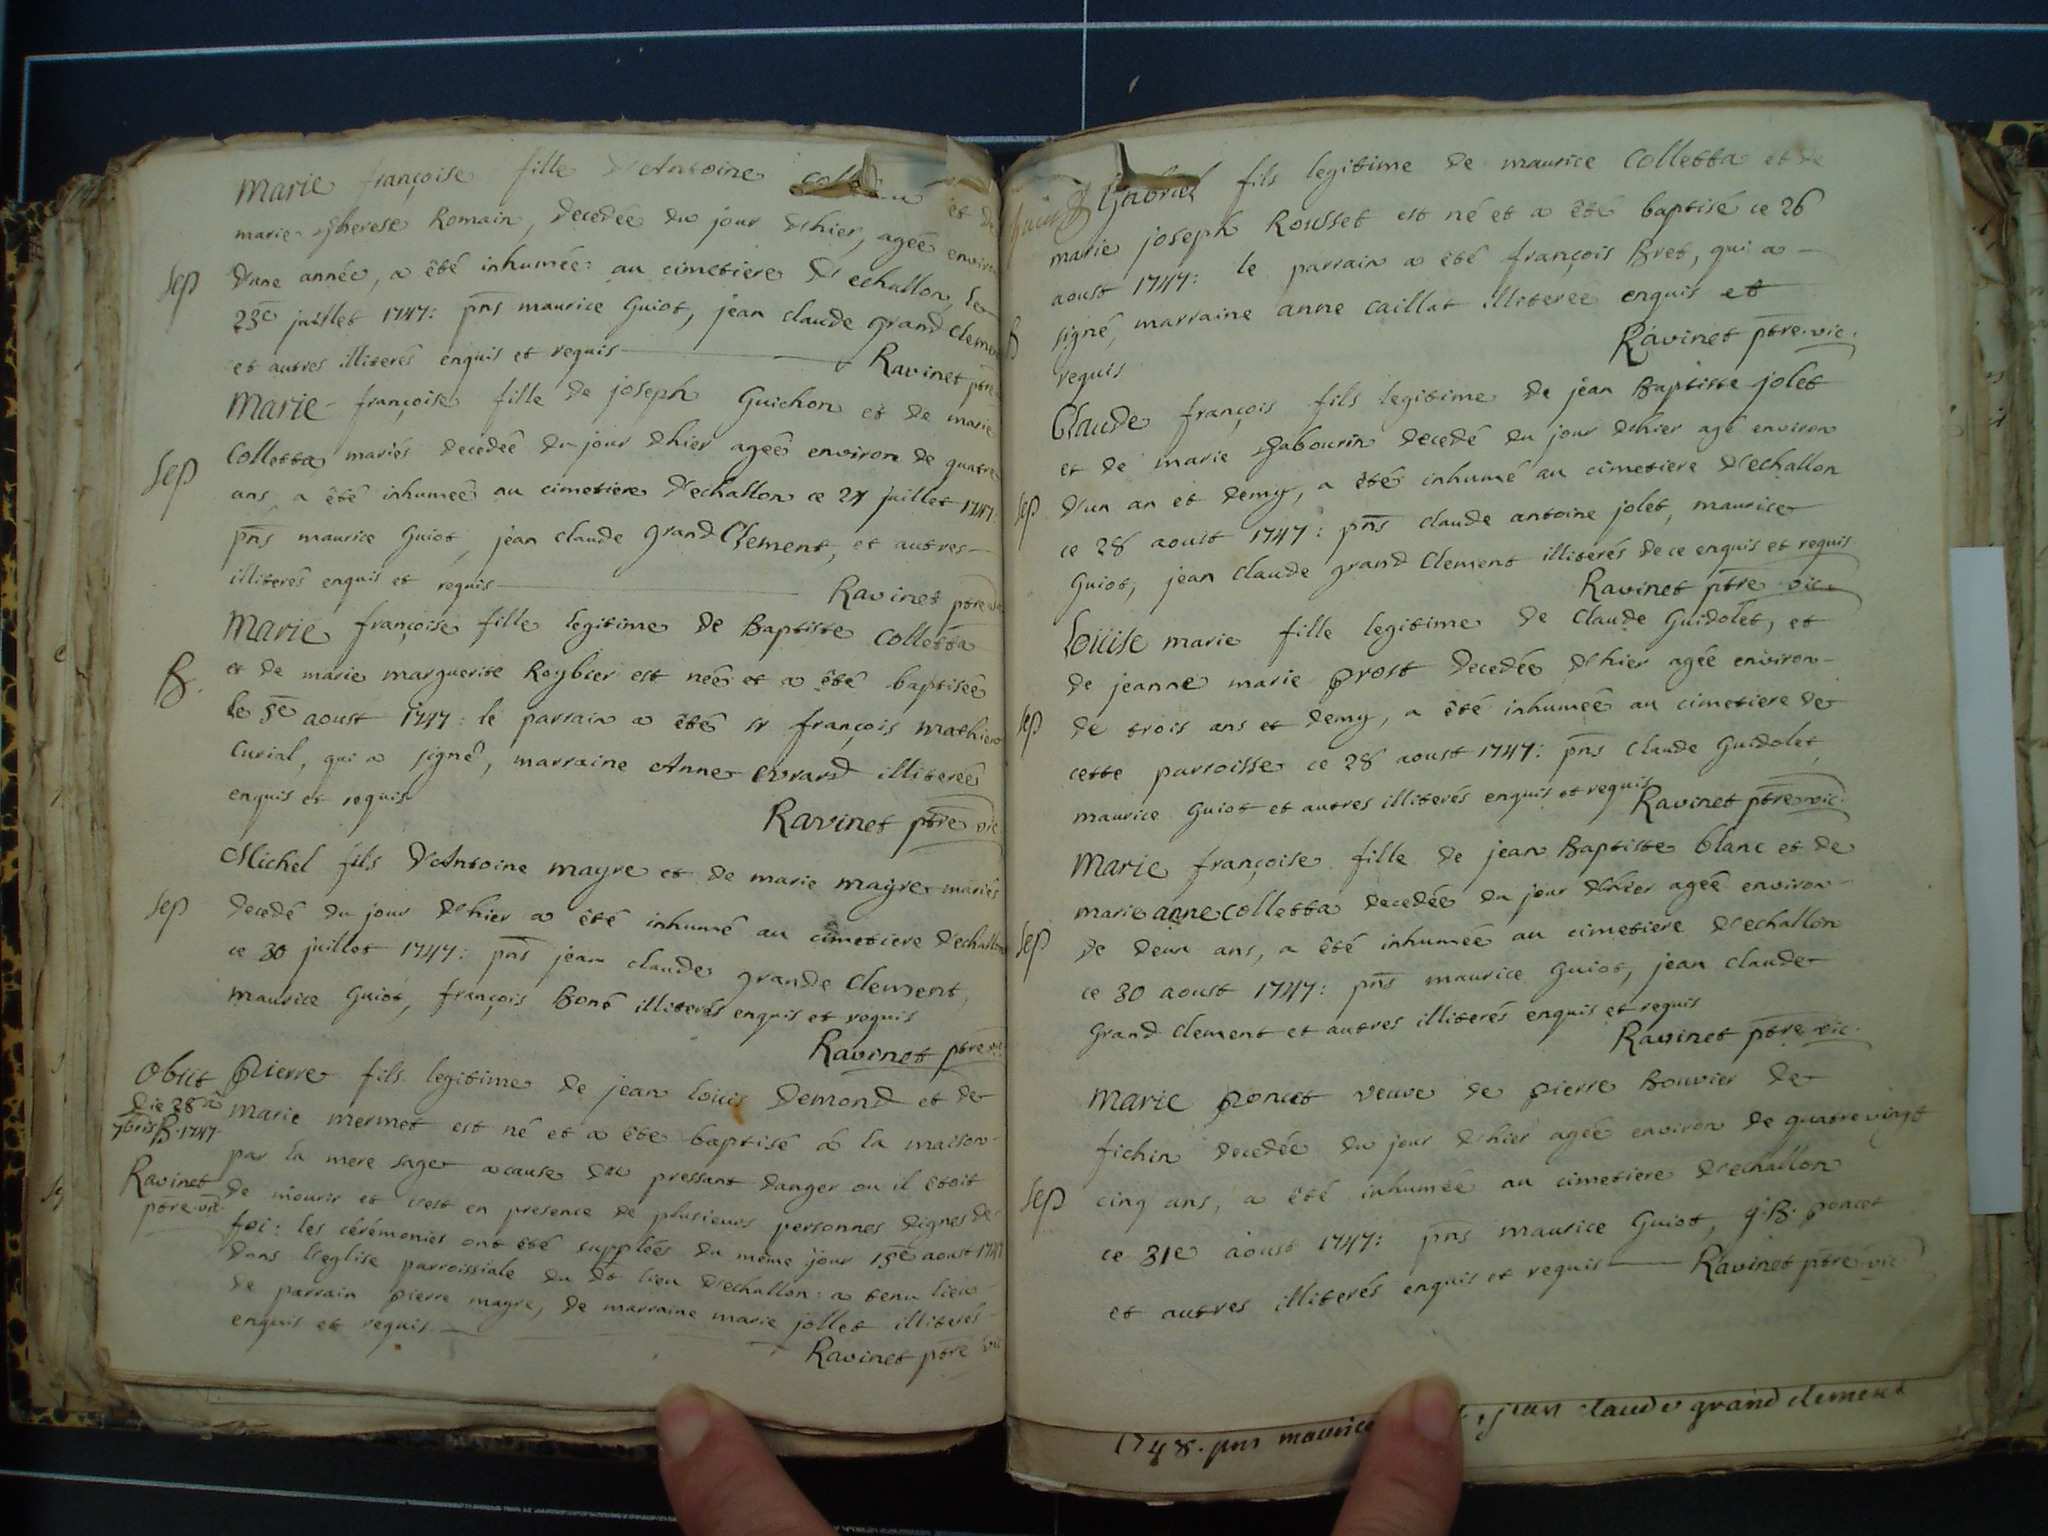 Marie françoise fille d'Antoine et de
marie Therese Romain, decedée du jour d'hier, agée environ
Sep
d'une année, a êté inhumée au cimetiere d'echallon le
23e juillet 1747: pns maurice Guiot, jean claude grand Clement
et autres illiterés enquis et requis Ravinet ptre
Marie françoise fille de joseph Guichon et de marie
Sep
Colletta mariés decedée du jour d'hier agée environ de quatre
ans, a êté inhumée au cimetiere d'echallon ce 24 juillet 1747:
pns maurice Guiot, jean claude grand Clement, et autres
illiterés enquis et requis Ravinet ptre
Marie françoise fille legitime de Baptiste Colletta
B.
et de marie marguerite Roybier est née et a êté baptisée
le 5e aoust 1747: le parrain a êté sr françois mathieu
Curial, qui a signé, marraine Anne Evrard illiterée
enquis et requis
Ravinet ptre vic
Michel fils d'Antoine mayre et de marie mayre mariés
Sep
decedé du jour d'hier a êté inhumé au cimetiere d'echallon
ce 30 juillet 1747: pns jean claude grande Clement,
maurice Guiot, françois Boné illiterés enquis et requis
Ravinet ptre vic
Obiit
die 28a
7bris 1747
Ravinet
ptre vic
Pierre fils legitime de jean loüis Demond et de
marie mermet est né et a êté baptisé à la maison
par la mere sage acause du pressant danger ou il êtoit
de mourir et c'est en presence de plusieurs personnes dignes de
foi: les cérémonies ont êté supplées du même jour 15e aoust 1747
dans l'eglise parroissiale du dt lieu d'echallon: a tenu lieu
de parrain pierre mayre, de marraine marie jollet illiterés
enquis et requis
Ravinet ptre vic
Gabriel fils legitime de maurice Colletta et de
marie joseph Rousset est né et a êté baptisé ce 26
aoust 1747: le parrain a êté françois Bret, qui a
B
signé, marraine anne caillat illiterée enquis et
requis
Ravinet ptre vic.
Claude françois fils legitime de jean Baptiste jolet
et de marie Tabourin decedé du jour d'hier agé environ
Sep
d'un an et demy, a êté inhumé au cimetiere d'echallon
ce 28 aoust 1747: pns claude antoine jolet, maurice
Guiot, jean claude grand Clement illiterés de ce enquis et requis
Ravinet ptre vic
Loüise marie fille legitime de claude Guidolet, et
de jeanne marie prost decedée d'hier agée environ
Sep
de trois ans et demy, a êté inhumée au cimetiere de
cette parroisse ce 28 aoust 1747: pns claude Guidolet,
maurice Guiot et autres illiterés enquis et requis
Ravinet ptre vic.
Marie françoise fille de jean Baptiste blanc et de
marie anne Colletta decedée du jour d'hier agée environ
Sep
de deux ans, a êté inhumée au cimetiere d'echallon
ce 30 aoust 1747: pns maurice Guiot, jean claude
grand Clement et autres illiterés enquis et requis
Ravinet ptre vic.
Marie poncet veuve de pierre Bouvier de
fichin decedée du jour d'hier agée environ de quatre vingt
Sep
cinq ans, a êté inhumée au cimetiere d'echallon
ce 31e aoust 1747: pns maurice Guiot, j. B. poncet
et autres illiterés enquis et requis Ravinet ptre vic
1748. pns maurice jean claude grand clement